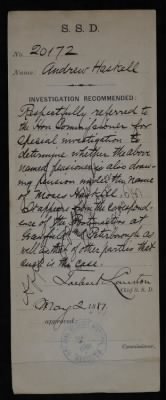 S. S. D.
No. 20172
Name Andrew Haskell
INVESTIGATION RECOMMENDED:
Respectfully referred to
the Hon Commissioner for
special investigation to
determine whether the above
named pensioner is also draw-
ing pension under the name
of Moses Haskell.
It appears from the correspond-
ence of the Postmasters at
and Peterborough as
well as that of other parties that
such is the case.
Chief S. S. D.
May 2 1887.
approved:
Commissioner.